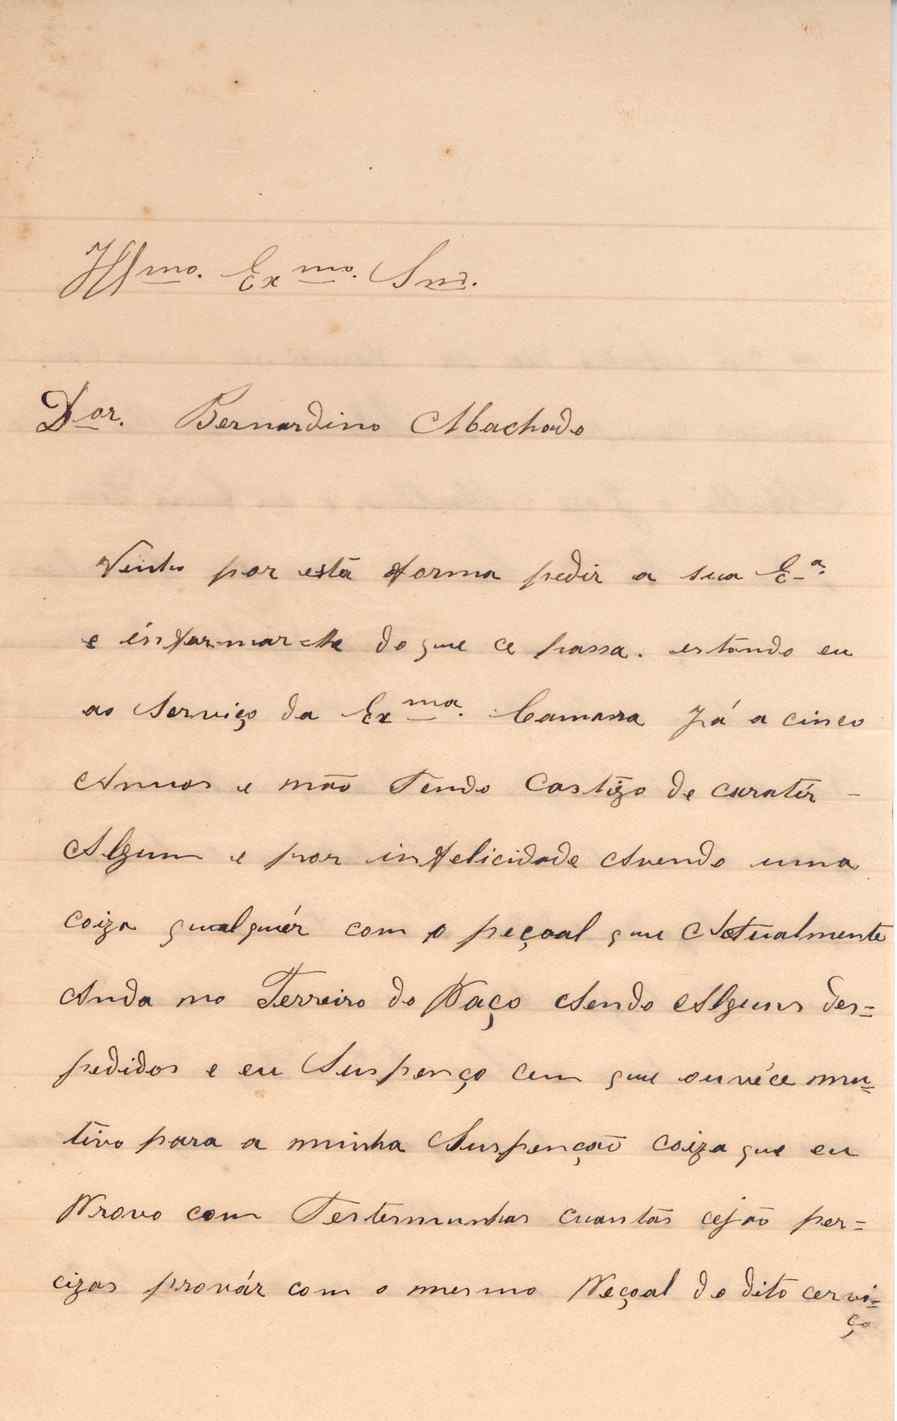 Illmo. Exmo. Snr.
Dor. Bernardino Machado
Venho por está forma pedir a sua Ea.
e informar-lhe do que ce passa. estando eu
ao Serviço da Exma. Camara Já a cinco
Annos e não Tendo Castigo de caratér -
Algum e por infelicidade Avendo uma
coiza qualquér com o peçoal que Actualmente
Anda no Terreiro do Paço Sendo Alguns des=
pedidos e eu Suspenço cem que ouvéce mu=
tivo para a minha Suspenção coiza que eu
Provo com Testemunhas cuantas cejão per=
cizas provár com o mesmo Peçoal do dito cervi=
ço